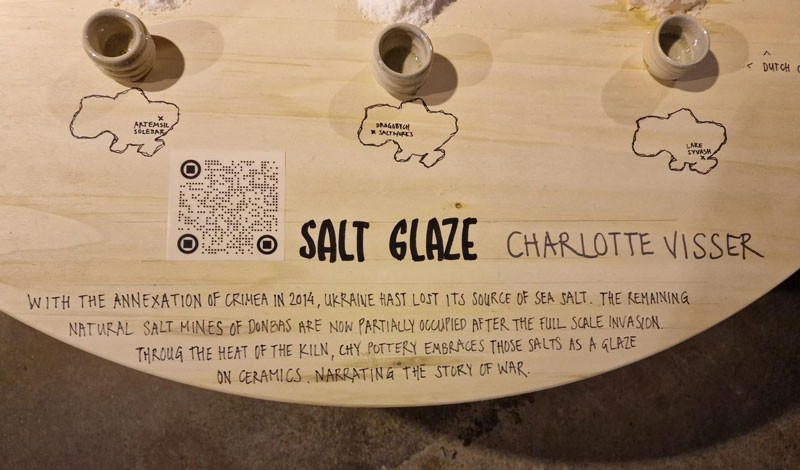 < DUTCH
ARTEMSIL
SOLEDAR
DRAGOBYCH
SALTWORKS
LAKE
SYVASH
SALT GLAZE CHARLOTTE VISSER
WITH THE ANNEXATION OF CRIMEA IN 2014, UKRAINE HAST LOST ITS SOURCE OF SEA SALT. THE REMAINING
NATURAL SALT MINES OF DONBAS ARE NOW PARTIALLY OCCUPIED AFTER THE FULL SCALE INVASION.
THROUG THE HEAT OF THE KILN, CHY POTTERY EMBRACES THOSE SALTS AS A GLAZE
ON CERAMICS. NARRATING THE STORY OF WAR.